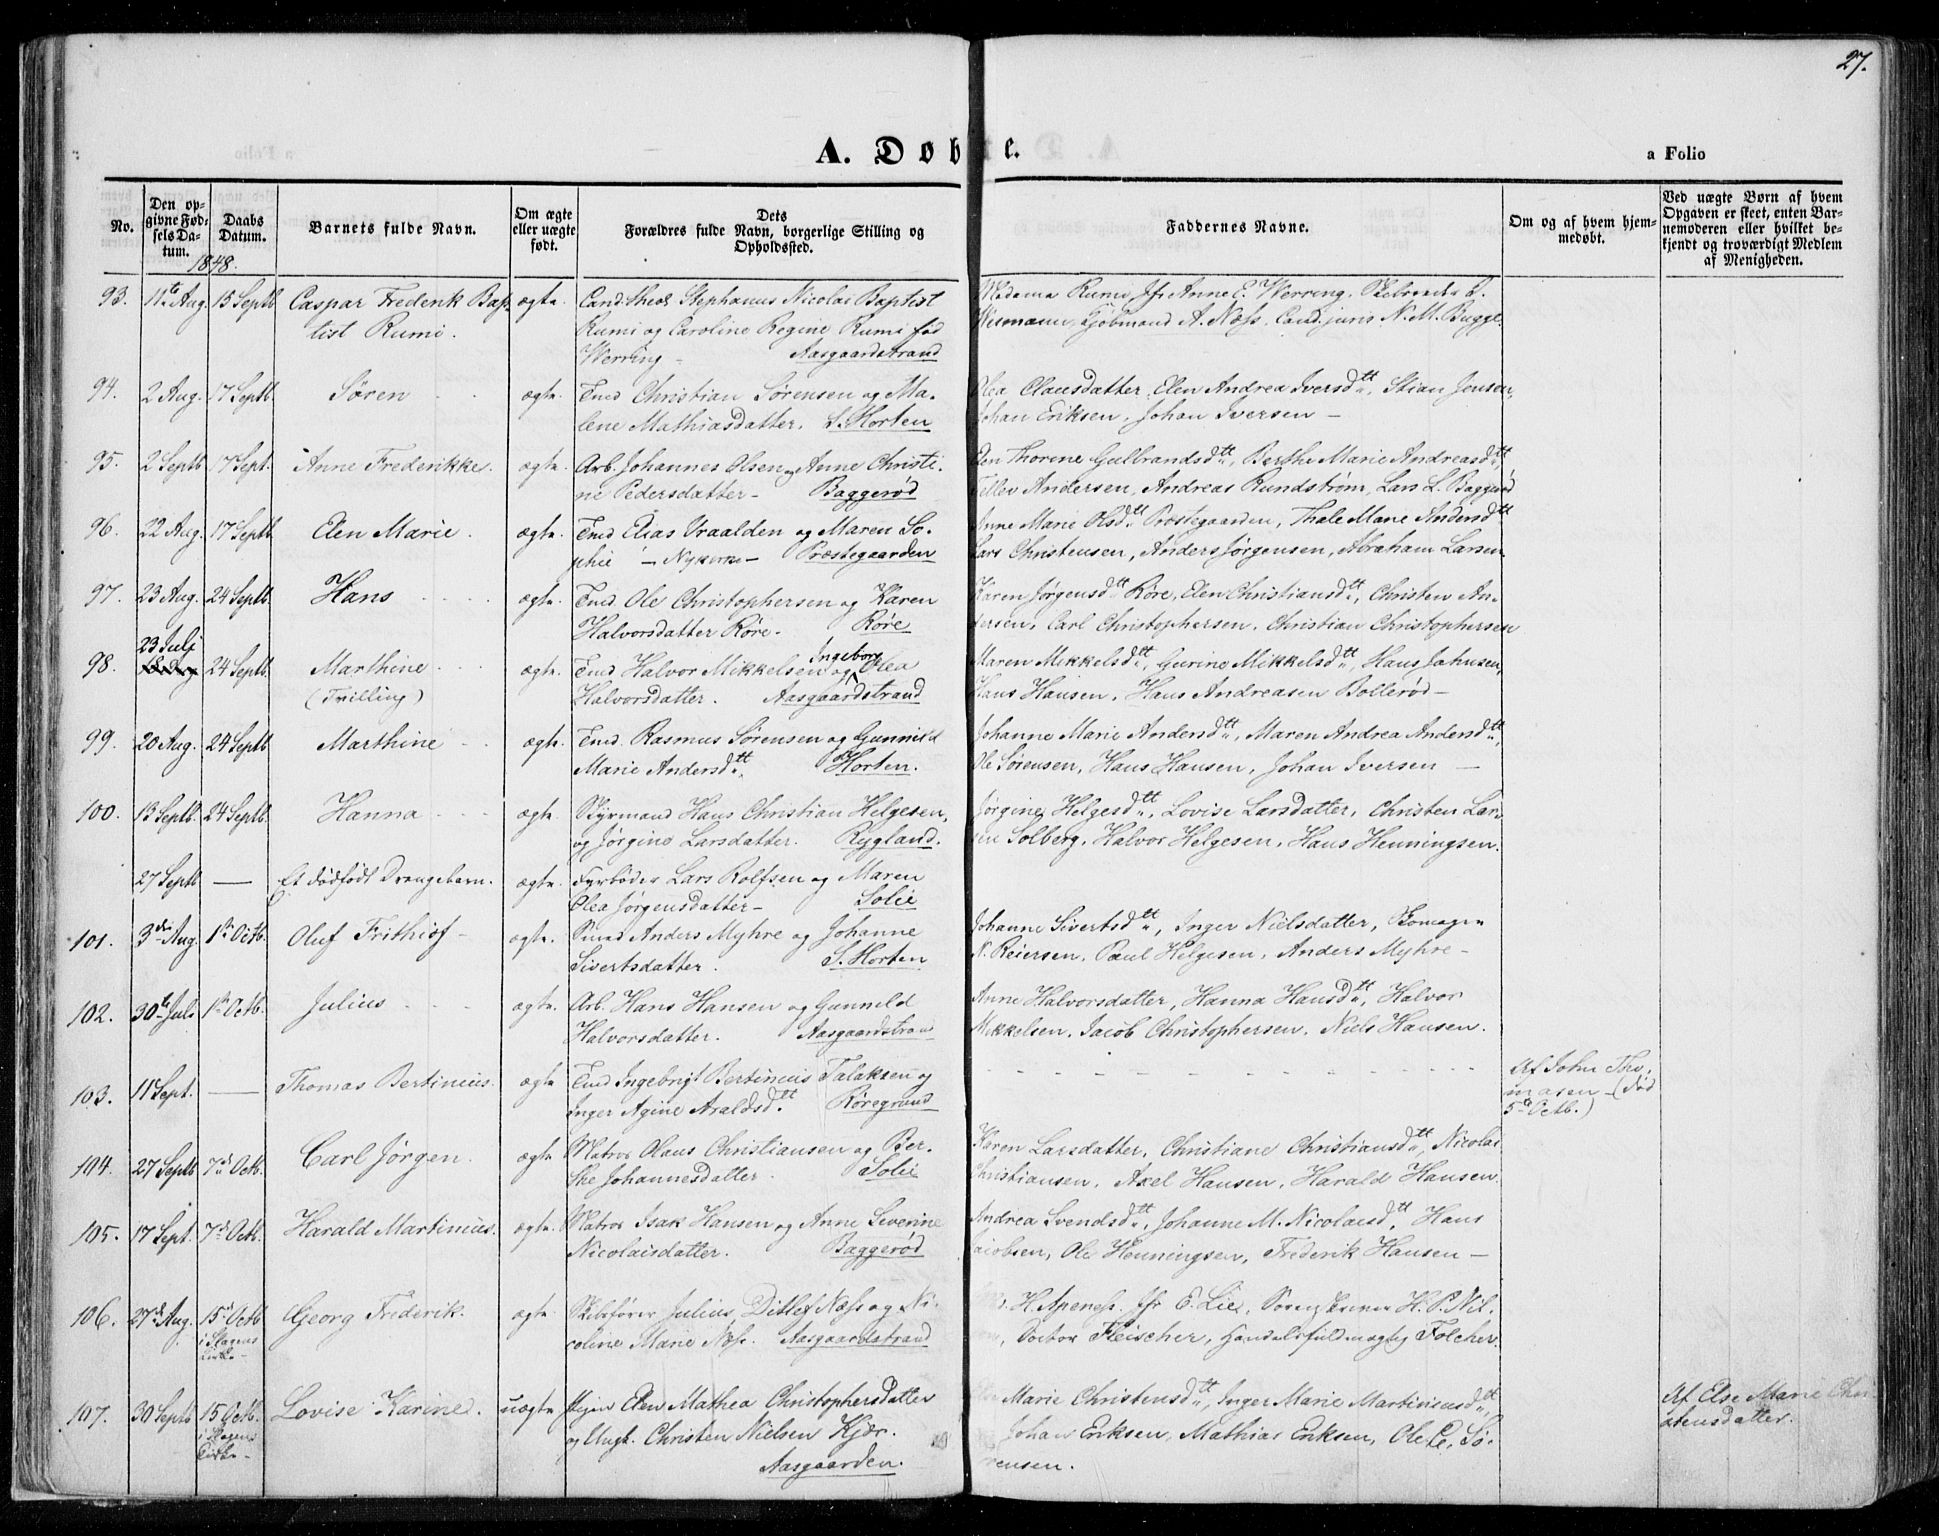 27.
A. Døbte.
a Folio
No.
Den op-
givne Fød-
sels Da-
tum.
Daabs
Datum.
Barnets fulde Navn.
Om ægte
eller uægte
født.
Dets
Forældres fulde Navn, borgerlige Stilling og
Opholdssted.
Faddernes Navne.
Om og af hvem hjem-
medøbt.
Ved uægte Børn af hvem
Opgaven er skeet, enten Bar-
nemoderen eller hvilket be-
kjendt og troværdigt Medlem
af Menigheden.
1848.
93. 11te Aug. 15 Septb Caspar Frederik Bap- ægte. Cand: theol Stephanus Nicolai Baptist Madame Rumi, Jfr Anne C. Werring,
tist Rumi. Rumi og Caroline Regine Rumi fød Wesmann, Kjøbmand A. Næss, Cand. juris N. M. Bugge.
Werring - Aasgaardstrand
94. 2 Aug. 17 Septb. Søren ægte. Tmd Christian Sørensen og Ma- Olea Clausdatter, Elen Andrea Iversdtt, Stian Jensen,
lene Mathiasdatter. S. Horten Johan Eriksen, Johan Iversen -
95. 2 Septb 17 Sept. Anne Frederikke. ægte. Arb. Johannes Olsen og Anne Christi- Elen Thorine Gulbrandsdtt, Berthe Marie Andreasdtt,
ne Pedersdatter - Baggerød Tellev Andersen, Andreas Rundstrøm, Lars L. Baggerød
96. 22 Aug. 17 Septb Elen Marie. ægte. Tmd Elias Vraalden og Maren So- Anne Marie Olsdtt Præstegaarden, Thale Marie Andersdtt
phie - Nykirke - Præstegaarden Lars Christensen, Anders Jørgensen, Abraham Larsen
97. 23 Aug. 24 Septb. Hans ægte. Tmd. Ole Christophersen og Karen Karen Jørgensdtt Røre, Elen Christiansdtt, Christen An-
Halvorsdatter Røre. Røre dersen, Carl Christophersen, Christian Christophersen
23 Julj Ingeborg
98. 24 Septb. Marthine ægte. Tmd Halvor Mikkelsen og Olea Maren Mikkelsdtt, Gurine Mikkelsdtt, Hans Jahnsen,
(Tvilling) Halvorsdatter. Aasgaardstrand Hans Hansen, Hans Andreasen Bollerød -
99. 20 Aug. 24 Septb Marthine ægte. Tmd. Rasmus Sørensen og Gunnild Johanne Marie Andersdtt, Maren Andrea Andersdtt,
Marie Andersdtt, Horten. Ole Sørensen, Hans Hansen, Johan Iversen -
100. 13 Septb. 24 Septb. Hanna ægte. Styrmand Hans Christian Helgesen, Jørgine Helgesdtt, Lovise Larsdatter, Christen Lar-
og Jørgine Larsdatter. Rygland. sen Solberg, Halvor Helgesen, Hans Henningsen.
27 Septb — Et dødfødt Drengebarn. ægte. Fyrbøder Lars Rolfsen og Maren
Olea Jørgensdatter - Solie
101. 3die Aug. 1ste Octb. Oluf Frithiof - ægte. Smed Anders Myhre og Johanne Johanne Sivertsdtt, Inger Nielsdatter, Skomager
Sivertsdatter. S. Horten N. Reiersen, Paul Helgesen, Anders Myhre -
102. 30te Juli 1ste Octb. Julius ægte. Arb. Hans Hansen og Gunnild Anne Halvorsdatter, Hanna Hansdtt, Halvor
Halvorsdatter. Aasgaardstrand Mikkelsen, Jacob Christophersen, Niels Hansen.
103. 11 Sept. — Thomas Bertinius. ægte Tmd Ingebrigt Bertinius Talaksen og Af John Tho-
Inger Agine Araldsdtt Røregrund masen - (død
5te Octb.)
104. 27 Septb 7de Octb. Carl Jørgen. ægte Matros Olaus Christiansen og Ber- Karen Larsdatter, Christiane Christiansdtt, Nicolai
the Johannesdatter. Solie Christiansen, Axel Hansen, Harald Hansen.
105. 17 Sept. 7de Octb. Harald Martinius. ægte. Matros Isak Hansen og Anne Severine Andrea Svendsdtt, Johanne M. Nicolaisdtt, Hans
Nicolaisdatter. Baggerød Jacobsen, Ole Henningsen, Frederik Hansen -
106. 27de Aug. 15de Octb Georg Frederik. ægte Skibsfører Julius Ditlef Næss og Ni- H. Apenes, Jfr E. Lie, H. P. Nil-
i Slagens coline Marie Næss. Aasgaardstrand Doctor Fleischer, Handelsfuldmægtig Folcher.
Kirke -
107. 30 Septb 15 Octb. Lovise Karine. uægte Pigen Elen Mathea Christophersdatter Marie Christensdtt, Inger Marie Martiniusdtt, Af Else Marie Chri-
i Slagens og Ungk. Christen Nielsen Kjær. Johan Eriksen, Mathias Eriksen, Ole C. Sø- stensdatter.
Kirke - Aasgaarden. rensen.